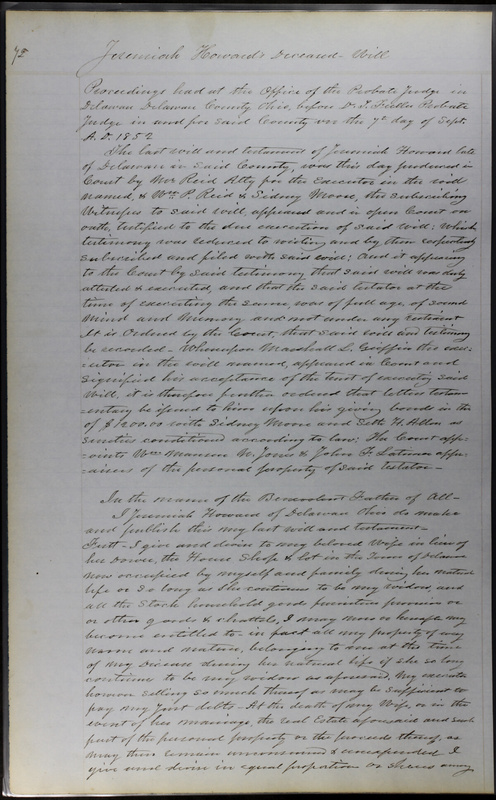 70
Jeremiah Howard's Deceased Will
Proceedings had at the Office of the Probate Judge in
Delaware Delaware County Ohio, before D. T. Fuller Probate
Judge in and for said County on the 7th day of Sept.
A. D. 1852
The last will and testament of Jeremiah Howard late
of Delaware in said County, was this day produced in
Court by Reid Atty for the Executor in the will
named, & Wm P. Reid & Sidney Moore, the subscribing
Witnesses to said will, appeared and in open Court on
oath, testified to the due execution of said will; which
testimony was reduced to writing and by them respectively
subscribed and filed with said will; And it appearing
to the Court by said testimony that said will was duly
attested & executed, and that the said testator at the
time of executing the same, was of full age, of sound
Mind and Memory and not under any restraint
It is Ordered by the Court, that said will and testimony
be recorded - Whereupon Marshall L. Griffin the exec-
-utor in the will named, appeared in Court and
signified his acceptance of the trust of executing said
Will, it is therefore further ordered that letters testam-
-entary be issued to him upon his giving bonds in the
of $1200.00 with Sidney Moore and Seth H. Allen as
sureties conditioned according to law; The Court app-
-oints Wm W. Jones & John F. Latimer appr-
-aisers of the personal property of said testator -
In the name of the Benevolent Father of All -
I Jeremiah Howard of Delaware Ohio do make
and publish this my last will and testament -
First - I give and devise to my beloved Wife in lieu of
her Dower, the House Shop & Lot in the Town of Delaware
now occupied by myself and family during her natural
life or so long as she continues to be my widow, and
all the Stock household goods furniture provisions or
or other goods & chattels, I may now or hereafter may
become entitled to in fact all my property of every
name and nature, belonging to me at the time
of my Decease during her natural life if she so long
continue to be my widow as aforesaid, My executor
however selling so much thereof as may be sufficient to
pay my Just debts - At the death of my Wife, or in the
event of her marriage, the real Estate aforesaid and such
part of the personal property or the proceeds thereof, as
may then remain unconsumed & unexpended I
give and devise in equal proportions or shares among